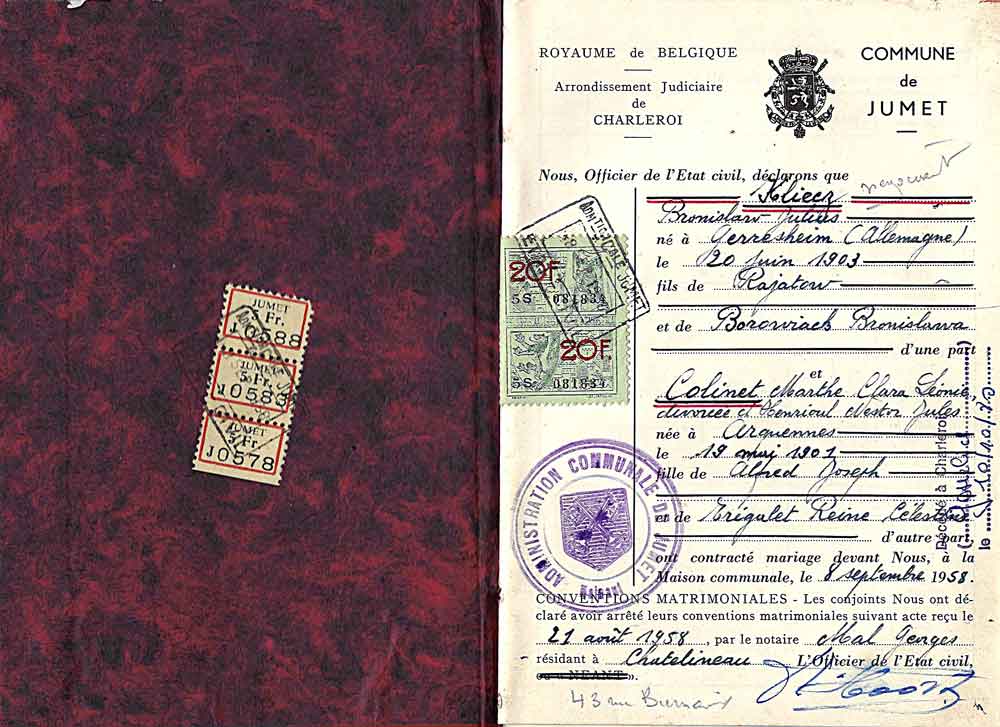 JUMET
5 Fr.
J0588
JUMET
5 Fr.
J0583
JUMET
5 Fr.
J0578
ROYAUME de BELGIQUE
Arrondissement Judiciaire
de
CHARLEROI
COMMUNE
de
JUMET
Nous, Officier de l'Etat civil, déclarons que
Kliecz
Bronislaw Julius
né à Gerresheim (Allemagne)
le 20 juin 1903
fils de Rajatow
et de Borowiach Bronislawa
d'une part
et
Colinet Marthe Clara Léonie
divorcée d'Henrioul Nestor Jules
née à Arquennes
le 19 mai 1901
fille de Alfred Joseph
et de Trigalet Reine Célestine
d'autre part,
ont contracté mariage devant Nous, à la
Maison communale, le 8 septembre 1958.
CONVENTIONS MATRIMONIALES - Les conjoints Nous ont dé-
claré avoir arrêté leurs conventions matrimoniales suivant acte reçu le
21 août 1958, par le notaire Mal Georges
résidant à Chatelineau L'Officier de l'Etat civil,
ou « NEANT ».
43 rue
20F.
5S 081834
20F.
5S 081834
JUMET
ADMINISTRATION COMMUNALE DE JUMET
Hainaut
Décédé à Charleroi
le 10/10/70